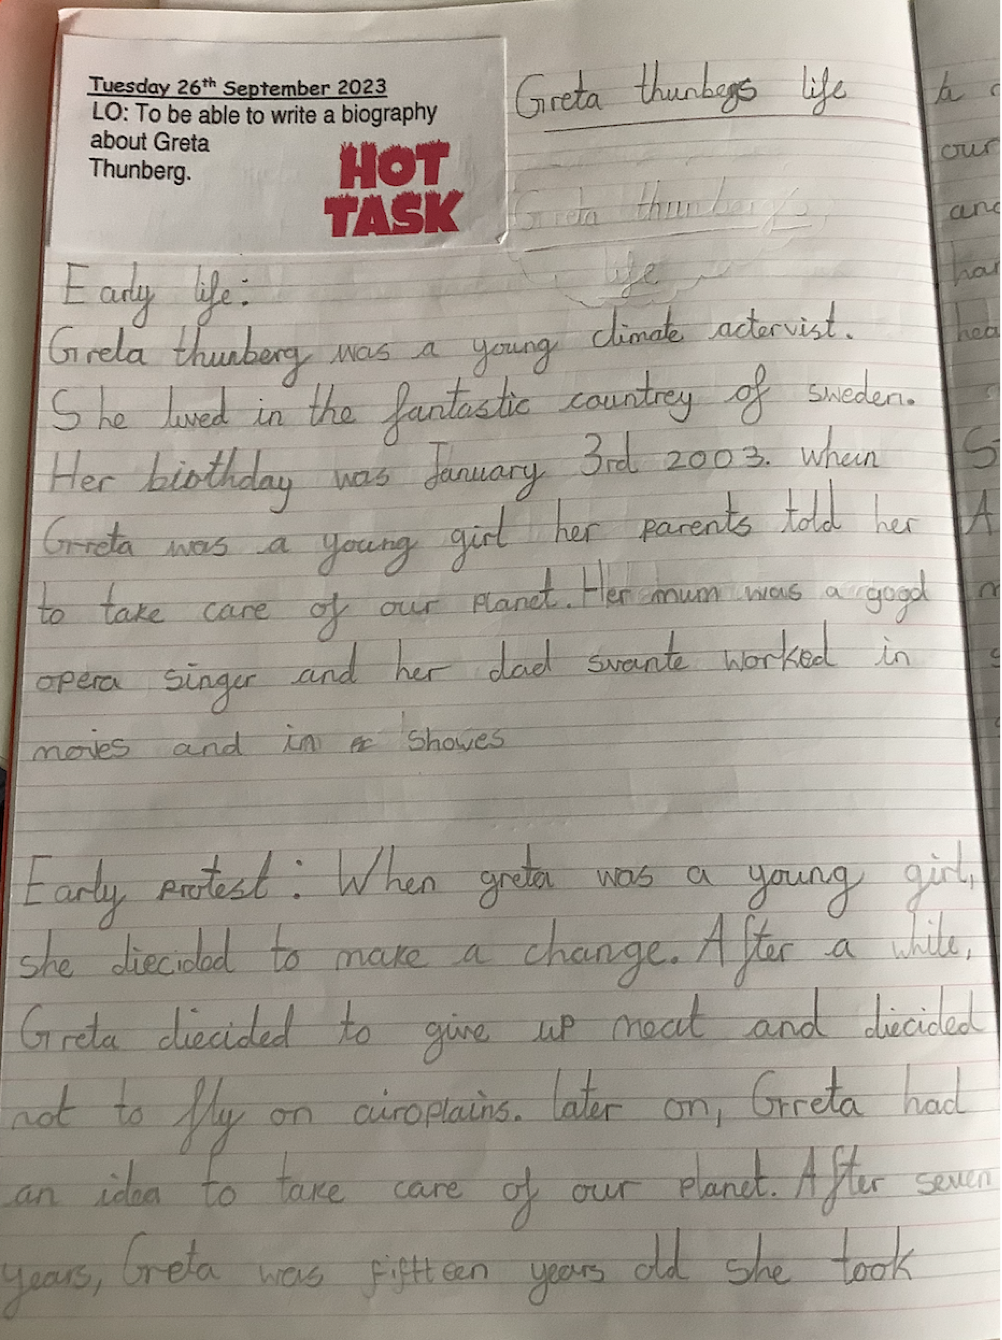 Tuesday 26th September 2023
LO: To be able to write a biography
about Greta
Thunberg.
HOT
TASK
Greta thunbegs life
Greta thunbergs
life
Early life:
Greta thunberg was a young climate actervist.
She lived in the fantastic countrey of sweden.
Her birthday was January 3rd 2003. when
Greta was a young girl her parents told her
to take care of our planet. Her mum was a good
opera singer and her dad svante worked in
movies and in showes
Early protest: When greta was a young girl,
she diecided to make a change. After a while,
Greta diecided to give up meat and diecided
not to fly on airoplains. later on, Greta had
an idea to take care of our planet. After seven
years, Greta was fiftteen years old she took
our
and